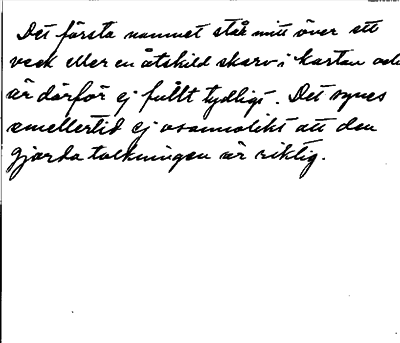 Det första namnet står mitt över ett
veck eller en åtskild skarv i kartan och
är därför ej fullt tydligt. Det synes
emellertid ej osannolikt att den
gjorda tolkningen är riktig.